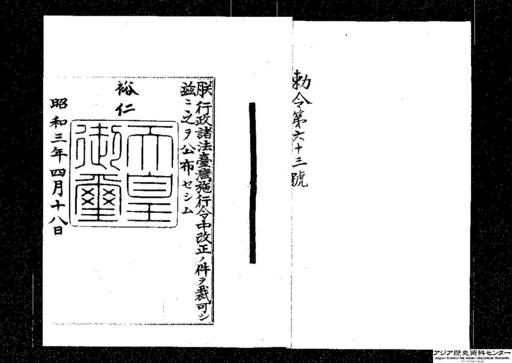 勅令第六十三號
朕行政諸法臺灣施行令中改正ノ件ヲ裁可シ
茲ニ之ヲ公布セシム
裕仁
天皇
御璽
昭和三年四月十八日
アジア歴史資料センター
Japan Center for Asian Historical Records